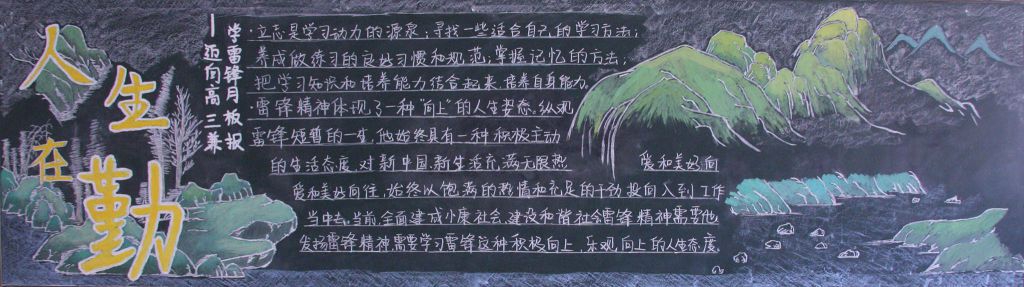 人生在勤
学雷锋月板报
—迎向高三养
·立志是学习动力的源泉；寻找一些适合自己的学习方法；
养成做练习的良好习惯和规范；掌握记忆的方法；
把学习知识和培养能力结合起来，培养自身能力。
·雷锋精神体现了一种"向上"的人生姿态。纵观
雷锋短暂的一生，他始终具有一种积极主动
的生活态度，对新中国、新生活充满无限热 爱和美好向
爱和美好向往，始终以饱满的热情和充足的干劲投向入到工作
当中去。当前，全面建成小康社会，建设和谐社会雷锋精神需要他
发扬雷锋精神需要学习雷锋这种积极向上、乐观向上的人生态度。